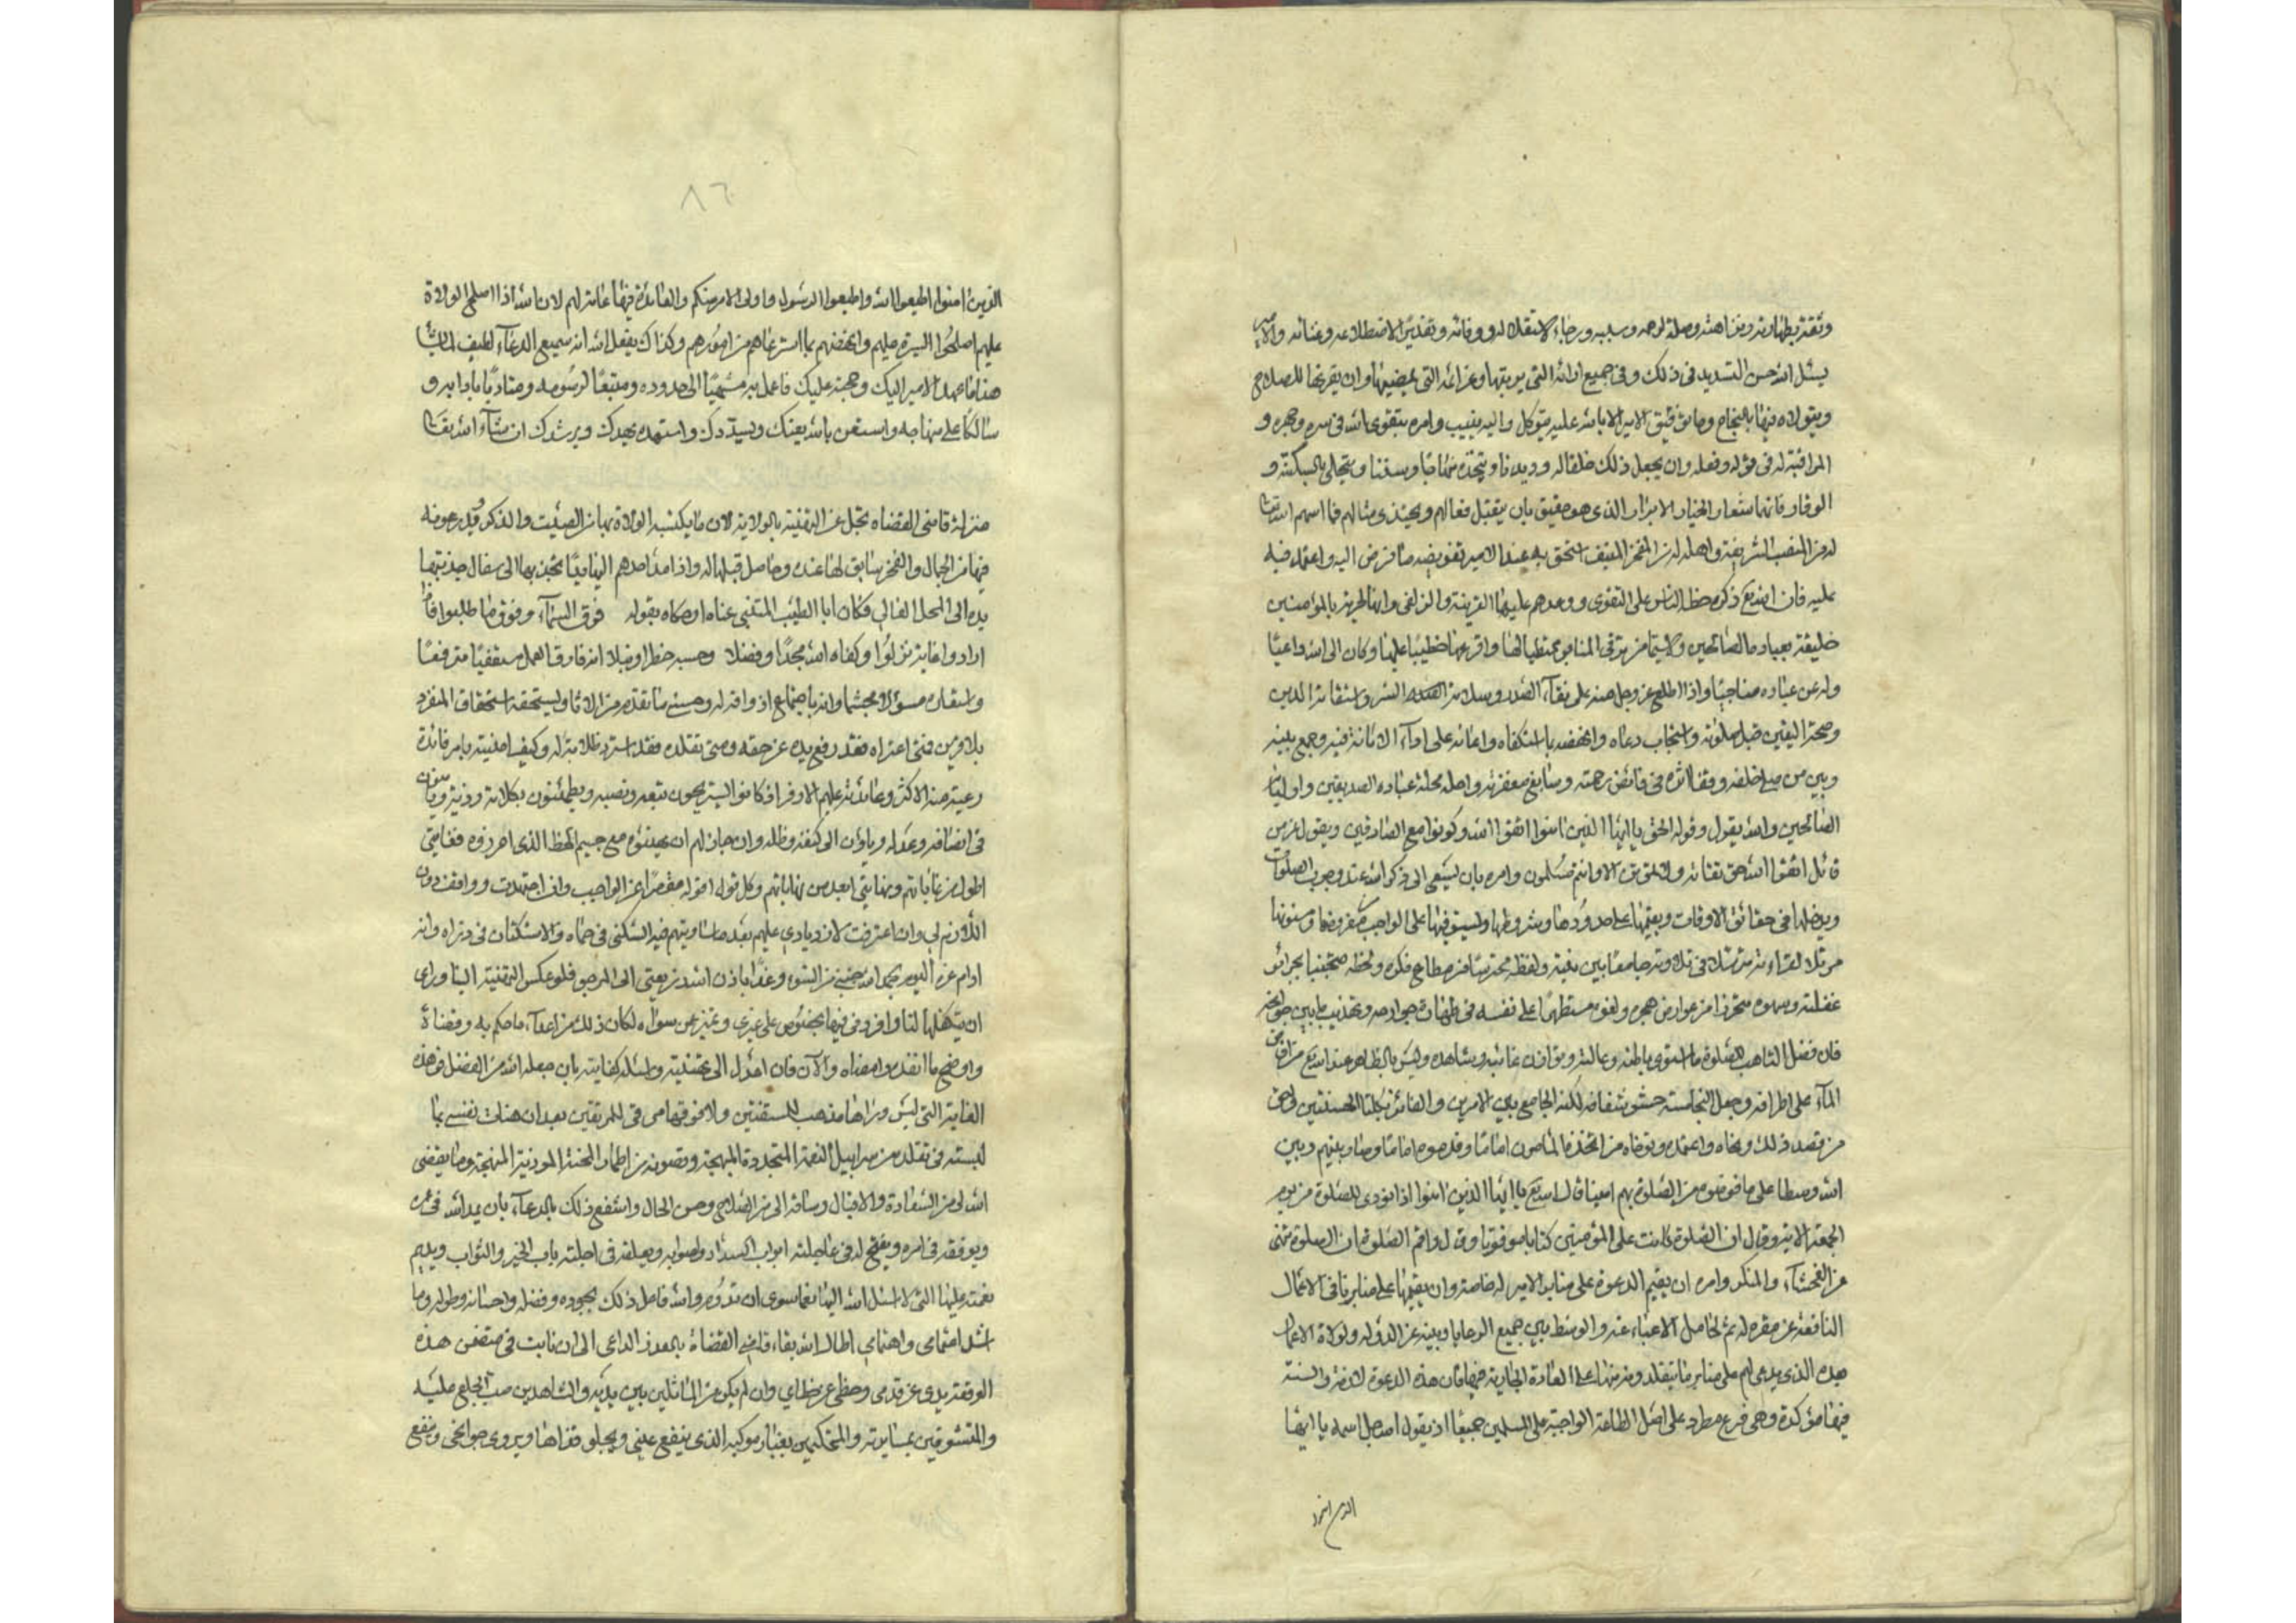 وثقة بطهارته ونزاهته وصلة لوجه وسببه ورجاء لاستقلاله ووفائه وتقديرًا لاضطلاعه وغنائه والامير
يسئل الله حسن التسديد في ذلك وفي جميع ارائه التي يرتبها وعزائمه التي يمضيها وان يقرنها للصلاح
ويتولاه فيها بالنجاح وما توفيق الامير الا بالله عليه يتوكل واليه ينيب وامره بتقوى الله في سره وجهره و
المراقبة له في قوله وفعله وان يجعل ذلك خلقا له وديدنا ويتخذه منهاجا وسننا ويتحلى بالسكينة و
الوقار فانهما شعار الاخيار الابرار الذي هو حقيق بان يتقبل فعالهم ويحتذى مثالهم فما اسهم الله تعالى
له من المنصب الشريف واهله له من المفخر المنيف استحق به عند الامير تفويضه ما فوض اليه واعتمد فيه
عليه فان الله تع ذكره حظ الناس على التقوى ووعدهم عليها القربة والزلفى وانها لحرية بالمؤمنين
خليقة بعباده الصالحين ولاسيما من ترقى المنابر ممتطيا لها واقرعها خطيبا عليها وكان الى الله داعيًا
وله عن عباده مناجيا واذا اطلع عز وجل منه على نقاء الصدر وسلامة السر واستقامة الدين
وصحة اليقين قبل صلوته واستجاب دعاه وانهضه بما استكفاه واعانه على اداء الامانة فيه وجمع بينه
وبين من صلى خلفه وقفا اثره في فائض رحمته وسابغ مغفرته واحله محلة عباده الصديقين واوليائه
الصالحين والله يقول وقوله الحق يا ايها الذين امنوا اتقوا الله وكونوا مع الصادقين ويقول عز من
قائل اتقوا الله حق تقاته ولا تموتن الا وانتم مسلمون وامره بان يسعى الى ذكر الله عند وجوب الصلوات
ويدخلها في حقائق الاوقات ويقيمها على حدودها وشروطها ويستوفيها على الواجب من مفروضها ومسنونها
مرتلا لقراءته مترسلا في تلاوته جامعا بين نيته ولفظه محترسًا من مطامح فكره ولحظه متجنبا لجرائر
غفلته وسهوه متحرزا من عوارض هجره ولغوه مستظهرًا على نفسه في طهارة جوارحه وتهذيب ما بين جوانحه
فان فضل التاهب للصلوة ما استوى باطنه وعالنه وتوازن غائبه وشاهده وليس بالطاهر عند الله تع من افاض
الماء على اطرافه وجعل النجاسة حشو شغافه لكنه الجامع بين الامرين والفائز بكلتا الحسنيين واحق
من قصد ذلك ونحاه واعتمده وتوخاه من اتخذه المأمون اماما وقدموه امامًا وصار بينهم وبين
الله وسطا على ما فوضوه من الصلوة بهم امينا قال الله تع يا ايها الذين امنوا اذا نودي للصلوة من يوم
الجمعة الاية وقال ان الصلوة كانت على المؤمنين كتابا موقوتا وقال واقم الصلوة ان الصلوة تنهى
عن الفحشاء والمنكر وامره ان يقيم الدعوة على منابر الامير له خاصة وان يقيمها على منابر باقي الاعمال
النافعة عن مقره له ثم لحامل الاعباء عنه والوسيط بين جميع الرعايا وبينه عز الدولة ولولاة الاعمال
بعده الذي يدعى لهم على منابر ما يتقلدونه منها على العادة الجارية فيها فان هذه الدعوة لازمة والسنة
فيها مؤكدة وهي فرع مطرد على اصل الطاعة الواجبة على المسلمين جميعًا اذ يقول الله جل اسمه يا ايها
الذين امنوا
٨٦
الذين امنوا اطيعوا الله واطيعوا الرسول واولى الامر منكم والفائدة فيها عائدة لهم لان الله اذا اصلح الولاة
عليهم اصلحوا السيرة فيهم وانهضهم بما استرعاهم من امورهم وكذلك يفعل الله انه سميع الدعاء لطيف لما يشاء
هذا ما عهد الامير اليك وحجته عليك فاعمل به منتهيًا الى حدوده ومتبعًا لرسومه ومتادبًا بادابه و
سالكًا على منهاجه واستعن بالله يعنك ويسددك واستهده يهدك ويرشدك ان شاء الله تعالى
منزلة قاضي القضاة تجل عن التهنية بالولاية لان ما يكتسبه الولاة بها من الصيت والذكر ويدرعونه
فيها من الجمال والفخر سابق لها عنده وحاصل قبلها له واذا مد احدهم اليها يدًا تجذبها الى سفال جذبتها
يده الى المحل العالي فكان ابا الطيب المتنبي عناه او حكاه بقوله فوق السماء وفوق ما طلبوا فاذا
ارادوا غاية نزلوا وكفاه الله مجدًا وفضلا وحسبه خطرا ونبلا انه فارق العمل مستعفيًا مترفعًا
واستعاده مسؤلا مجشما وانه باجتماع اذ واقه له وحسبى ما تقدم من الاثار ويستحقه استحقاق المنفرد
بلا قرين فمتى اعتراه فقد رفع يده عن حقه ومتى تقلده فقد استرد ظلامة له وكيف اهنيه بامر فائدة
رعيته منه الاكثر وعائدته عليهم الاوفر اذ كانوا يستريحون بتعبه ونصبه ويطمئنون بكلائه وذبه ويامنون
في انصافه وعدله وياوون الى كنفه وظله وان جاز لهم ان يهنؤه مع جسيم الحظ الذي احرزوه فغايتي
اطول من غاياتهم ونهايتي ابعد من نهاياتهم وكل قول اقوله مقصرا عن الواجب وان اجتهدت وواقف دون
اللازم لي وان اعترفت لازديادي عليهم بعد مساويتهم فيه السكنى في حماه والاستكنان في ذراه وانه
ادام عزه اليوم بحمد الله جنبي من السوء وغدًا باذن الله ذريعتي الى المرجو فلو عكس التهنية الينا وراى
ان يتكفلها لنا وافرونى فيها بخصوص على غيري وتميز عن سواه لكان ذلك من اعدل ما حكم به وقضاه
واوضح ما انفذه وامضاه والآن فان اعدل الى تهنيته واسئله كفايته بان جعله الله من الفضل فوهذه
الغاية التي ليس وراها مذهب للمستفتين ولا فوقها مرقى للمرتقين بعد ان هنات نفسي بما
لبسته في تقلده من سرابيل النعمة المتجددة المبهجة وتصونه من اطمار المحنة الموذية المنهجة وما يفضى
الله لي من السعادة والاقبال وساقه الى من الصلاح وحسن الحال واشفع ذلك بالدعاء بان يمد الله في عمره
ويوفقه في امره ويفتح له في عاجلته ابواب السداد والصواب ويعلقه في اجلته باب الخير والثواب ويديم
نعمته عليها التي لا اسئل الله اليها نعما سوى ان تدوم والله فاعل ذلك بجوده وفضله واحسانه وطوله وما
اشد اغتمامي واهتمامي اطال الله بقاء قاضي القضاة بالعذر الداعي الى ان نابت في متضمن هذه
الوقعة يدي عن قدمي وخطى عن خطاي وان لم يكن من الماثلين بين يديه والشاهدين صب الخلع عليه
والمتشوقين بمسايرته والمتكحلين بغبار موكبه الذي ينفع عيني ويجلو قذاها ويروي جوانحي وينقع